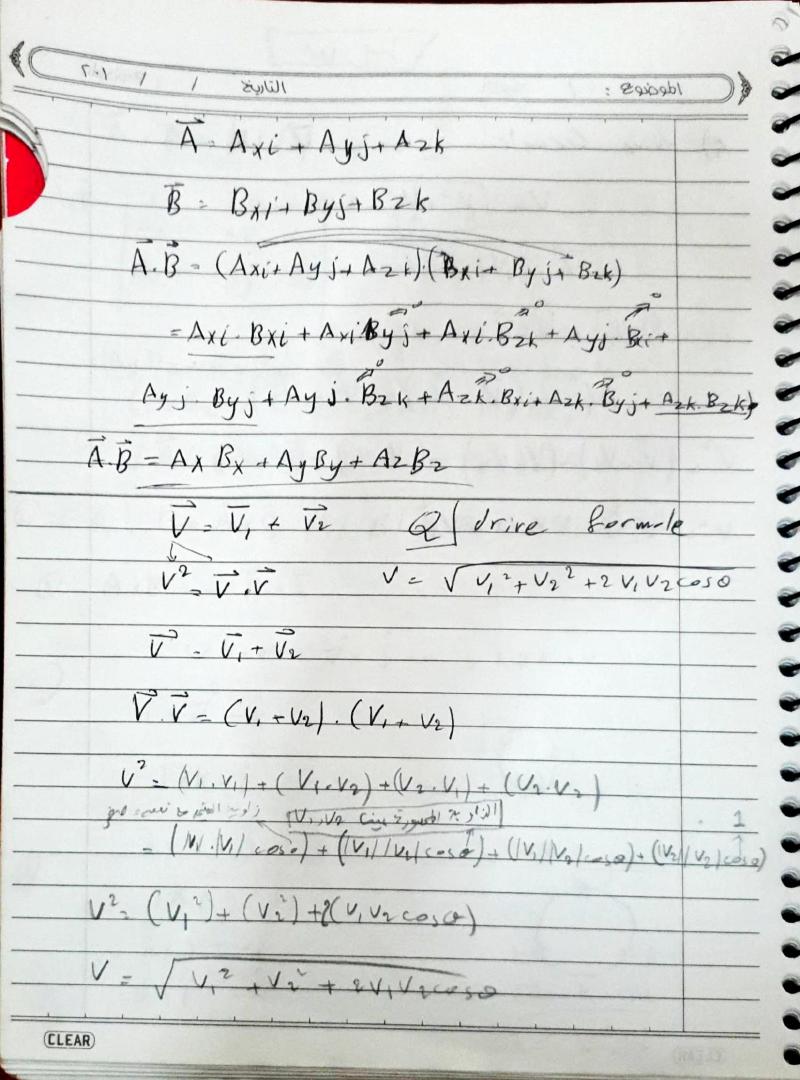 الموضوع : التاريخ / / ٢٠١
A⃗ = Axi + Ayj + Azk
B⃗ = Bxi + Byj + Bzk
A⃗.B⃗ = (Axi + Ayj + Azk).(Bxi + Byj + Bzk)
= Axi . Bxi + Axi Byj + Axi . Bzk + Ayj . Bxi +
Ayj . Byj + Ayj . Bzk + Azk . Bxi + Azk . Byj + Azk . Bzk
A⃗.B⃗ = AxBx + AyBy + AzBz
V⃗ = V⃗₁ + V⃗₂ Q| drive formule
V² = V⃗.V⃗ V = √V₁² + V₂² + 2V₁V₂cosθ
V⃗ = V⃗₁ + V⃗₂
V⃗.V⃗ = (V₁ + V₂).(V₁ + V₂)
V² = (V₁.V₁) + (V₁.V₂) + (V₂.V₁) + (V₂.V₂)
الزاوية المحصورة بين V₁, V₂ 1
= (|V₁|.|V₁| cos0) + (|V₁||V₂|cosθ) + (|V₁||V₂|cosθ) + (|V₂||V₂|cos0)
V² = (V₁²) + (V₂²) + 2(V₁V₂cosθ)
V = √V₁² + V₂² + 2V₁V₂cosθ
CLEAR